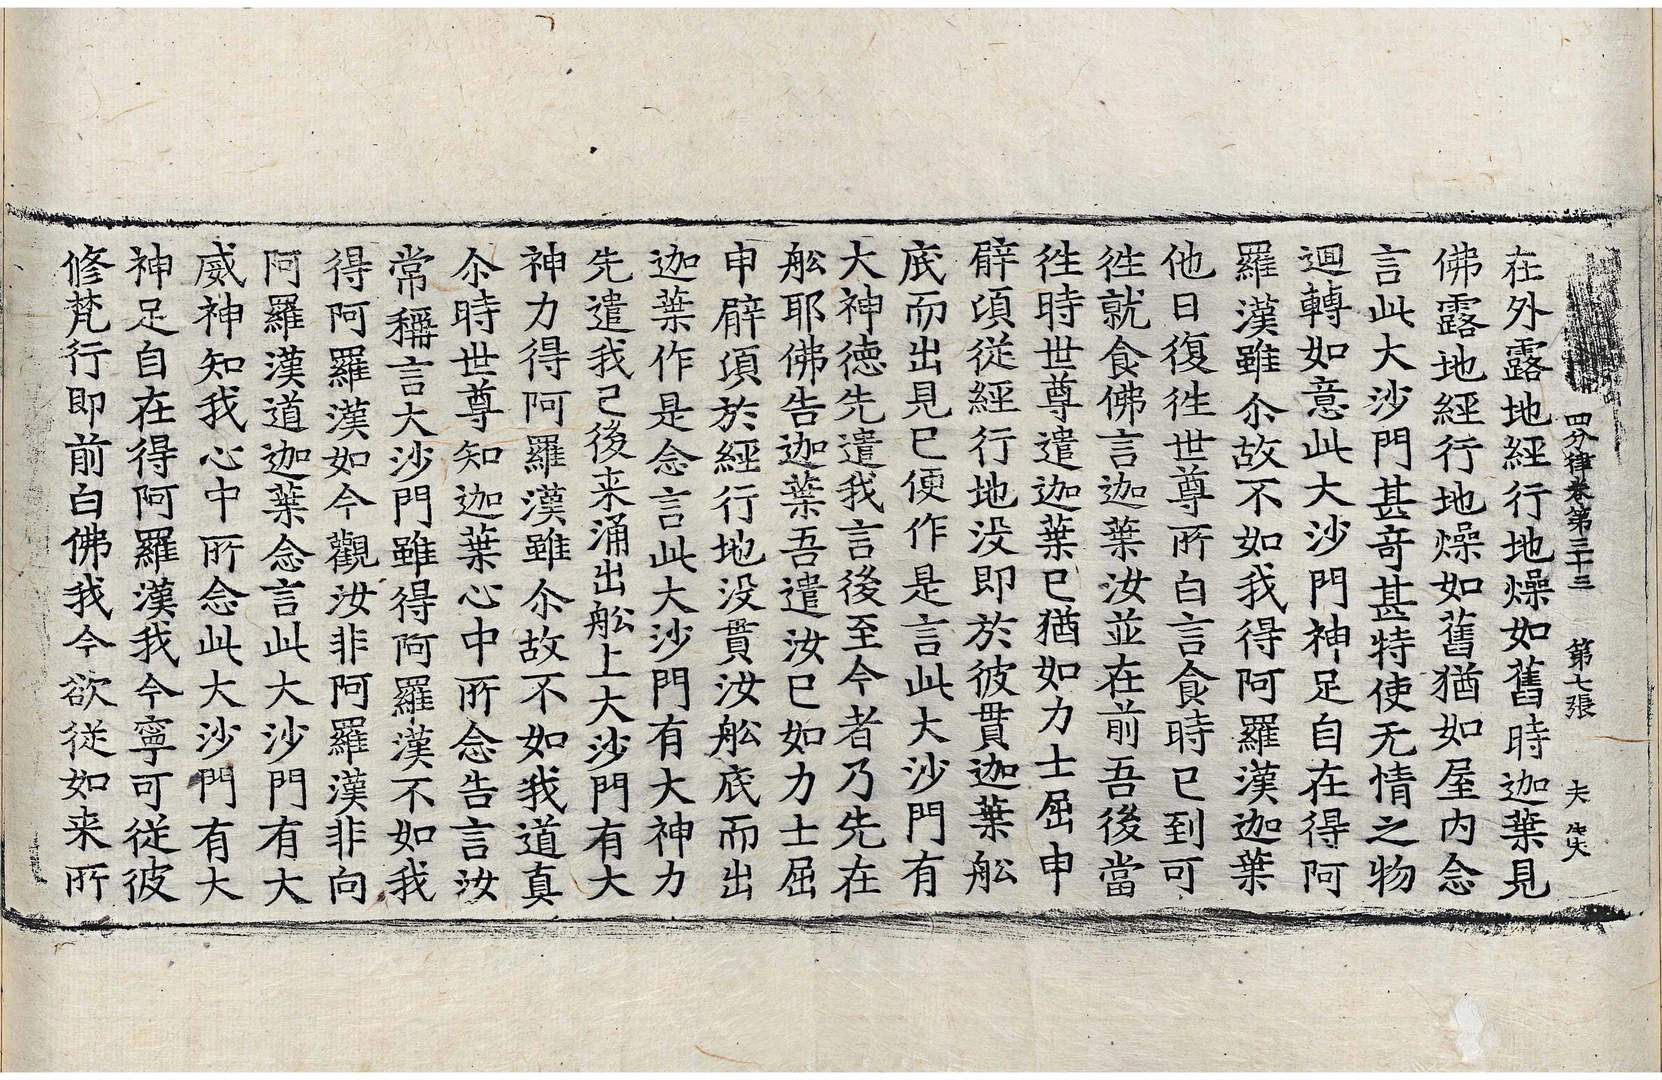 四分律卷第三十三　第七張　夫
在外露地經行地燥如舊時迦葉見
佛露地經行地燥如舊猶如屋內念
言此大沙門甚奇甚特使无情之物
迴轉如意此大沙門神足自在得阿
羅漢雖尒故不如我得阿羅漢迦葉
他日復徃世尊所白言食時已到可
徃就食佛言迦葉汝並在前吾後當
徃時世尊遣迦葉已猶如力士屈申
臂頃從經行地没即於彼貫迦葉舩
底而出見已便作是言此大沙門有
大神德先遣我言後至今者乃先在
舩耶佛告迦葉吾遣汝已如力士屈
申臂頃於經行地没貫汝舩底而出
迦葉作是念言此大沙門有大神力
先遣我已後来涌出舩上大沙門有大
神力得阿羅漢雖尒故不如我道真
尒時世尊知迦葉心中所念告言汝
常稱言大沙門雖得阿羅漢不如我
得阿羅漢如今觀汝非阿羅漢非向
阿羅漢道迦葉念言此大沙門有大
威神知我心中所念此大沙門有大
神足自在得阿羅漢我今寧可從彼
修梵行即前白佛我今欲從如来所